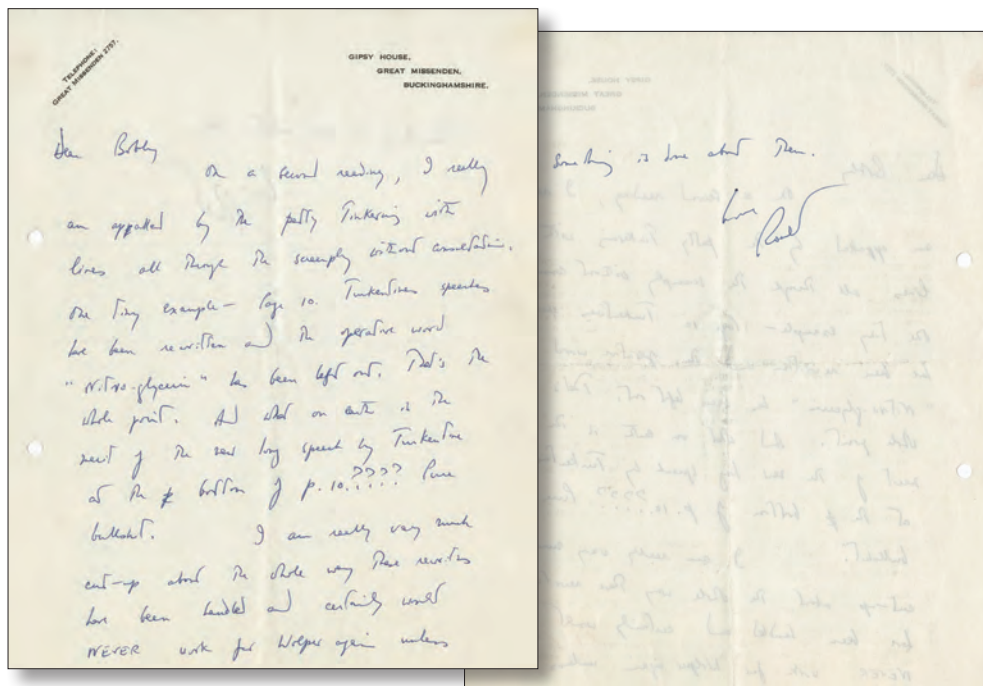 TELEPHONE:
GREAT MISSENDEN 2757.
GIPSY HOUSE,
GREAT MISSENDEN,
BUCKINGHAMSHIRE.
Dear Bobby
On a second reading, I really
am appalled by the petty Tinkering with
lines all through the screenplay without consultation.
One tiny example – Page 10. Turkentine's speeches
have been rewritten and the operative word
"Nitro-glycerin" has been left out. That's the
whole point. And what on earth is the
merit of the new long speech by Turkentine
at the bottom of p.10.???? Pure
bullshit. I am really very much
cut-up about the whole way these rewrites
have been handled and certainly would
NEVER work for Wolper again unless
something is done about them.
Love
Roald